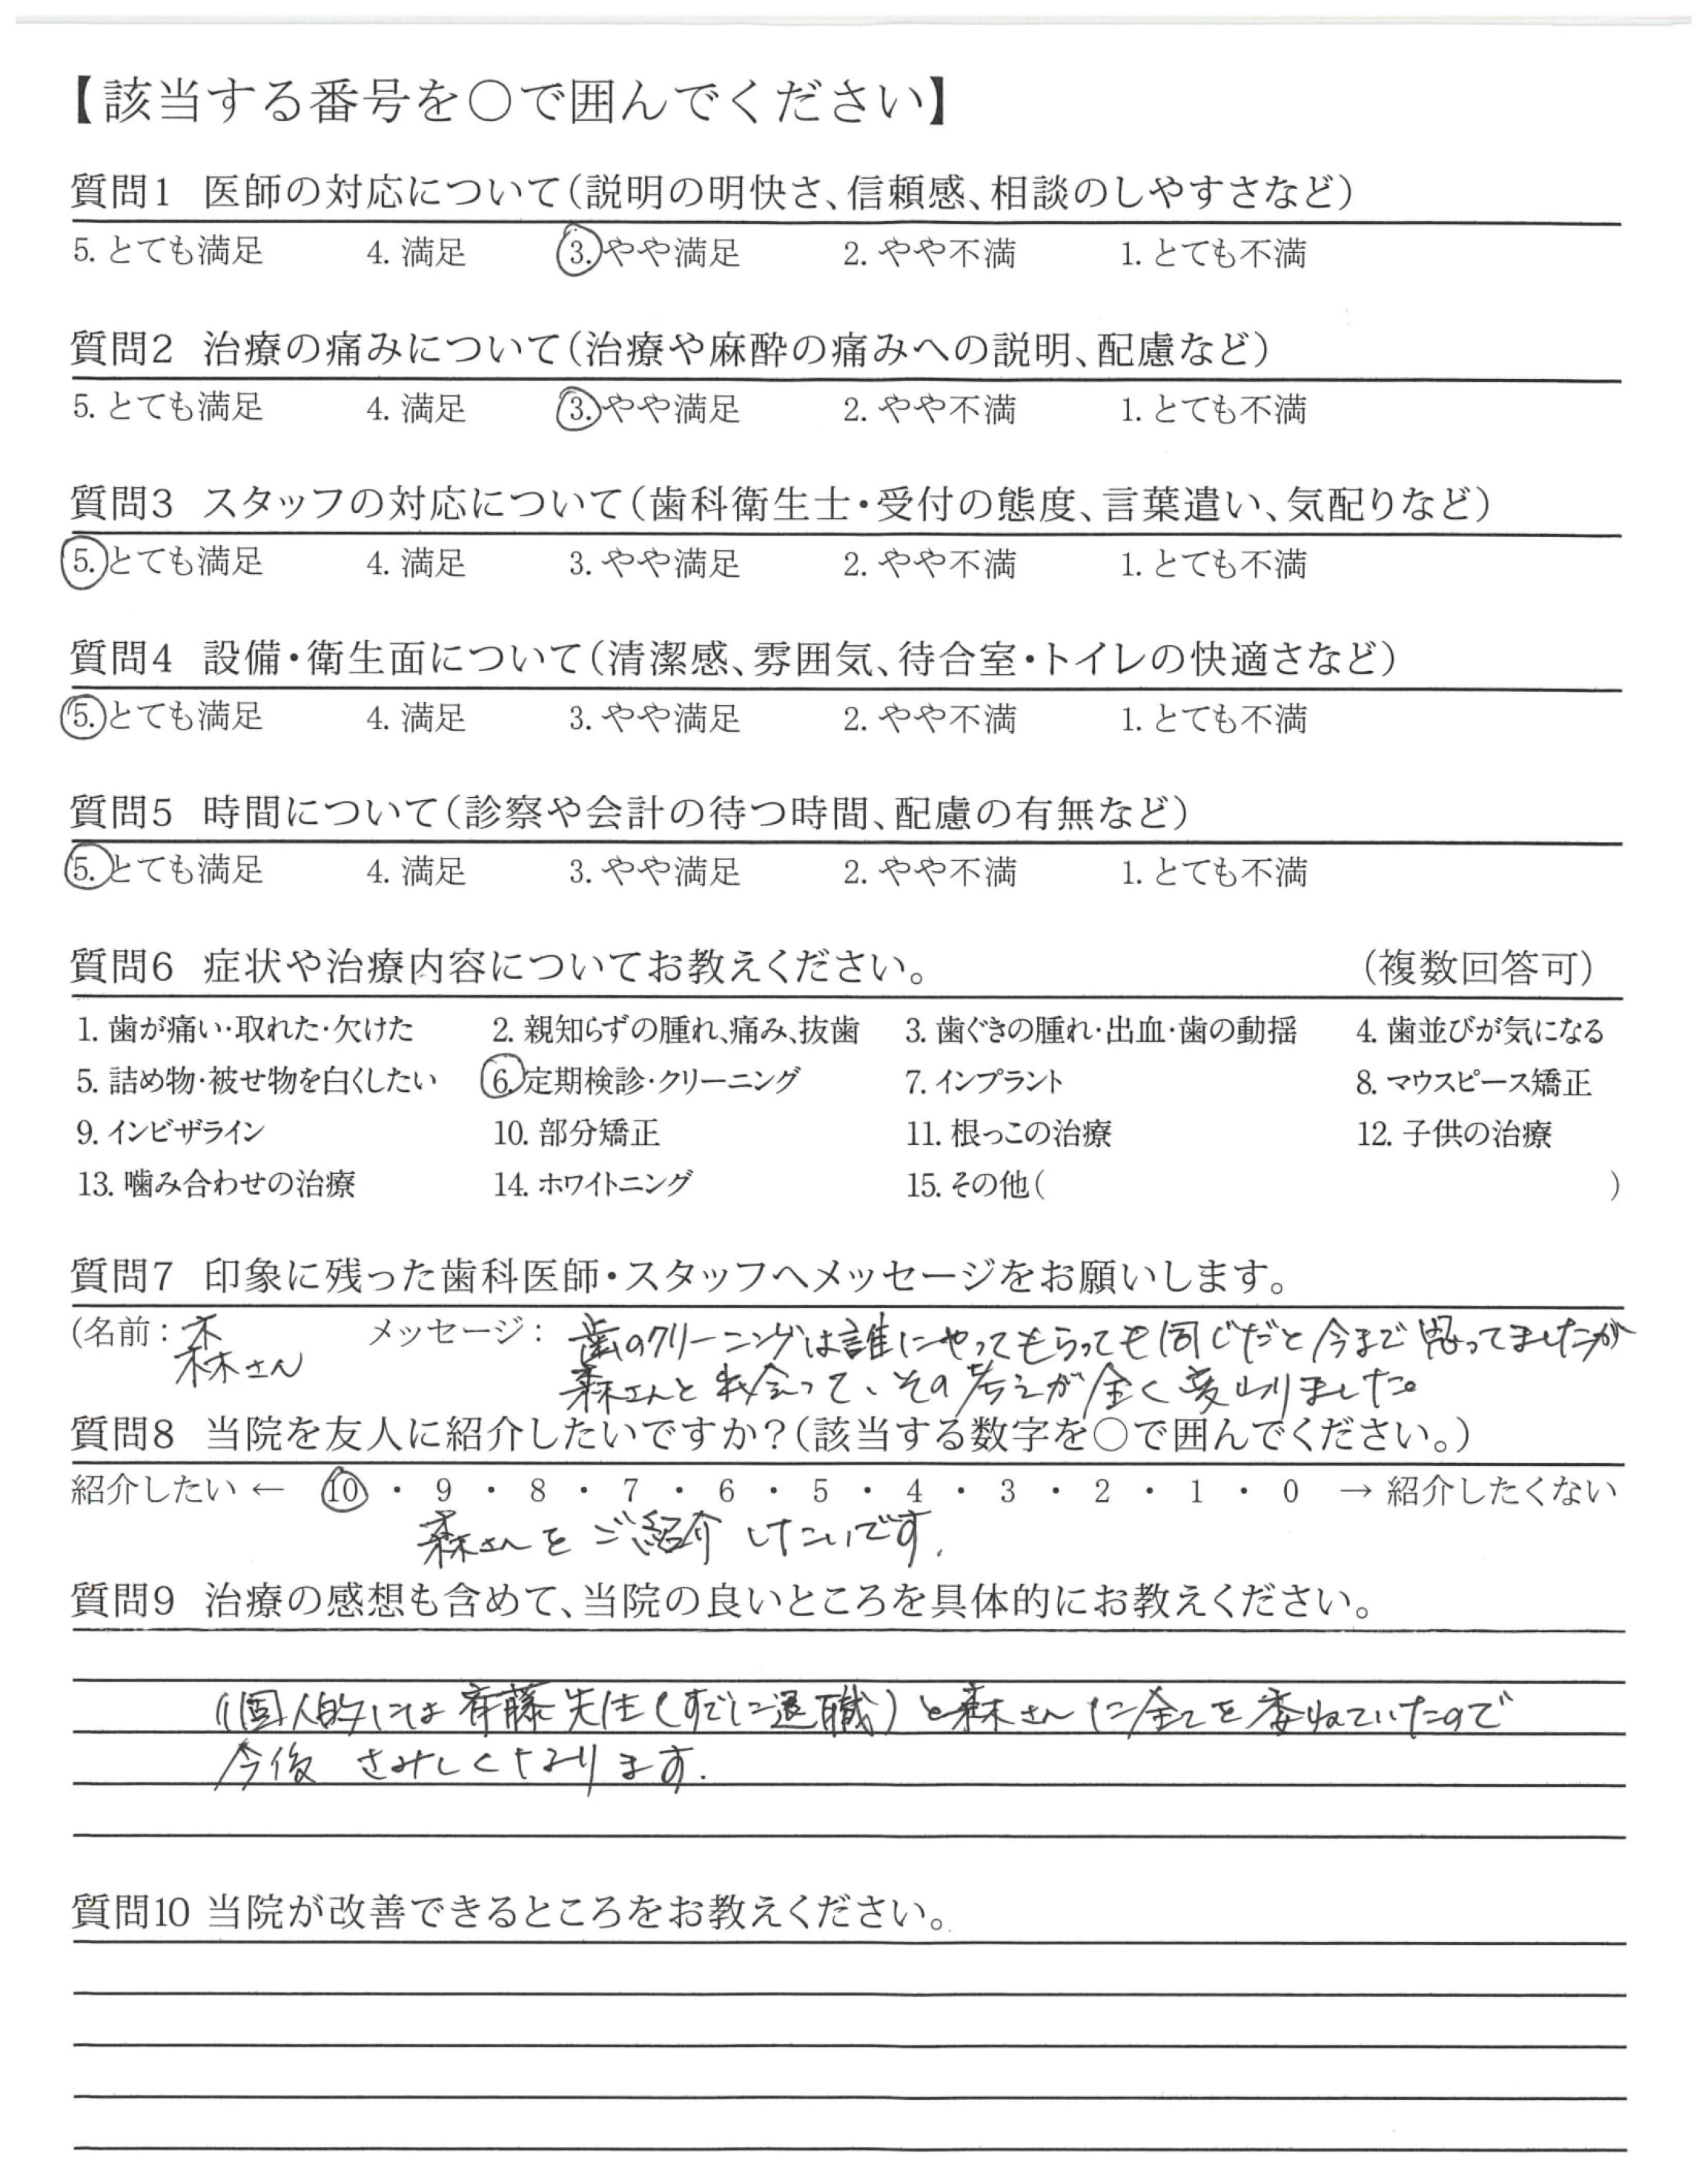 【該当する番号を○で囲んでください】
質問1 医師の対応について(説明の明快さ、信頼感、相談のしやすさなど)
5. とても満足 4. 満足 3. やや満足 2. やや不満 1. とても不満
質問2 治療の痛みについて(治療や麻酔の痛みへの説明、配慮など)
5. とても満足 4. 満足 3. やや満足 2. やや不満 1. とても不満
質問3 スタッフの対応について(歯科衛生士・受付の態度、言葉遣い、気配りなど)
5. とても満足 4. 満足 3. やや満足 2. やや不満 1. とても不満
質問4 設備・衛生面について(清潔感、雰囲気、待合室・トイレの快適さなど)
5. とても満足 4. 満足 3. やや満足 2. やや不満 1. とても不満
質問5 時間について(診察や会計の待つ時間、配慮の有無など)
5. とても満足 4. 満足 3. やや満足 2. やや不満 1. とても不満
質問6 症状や治療内容についてお教えください。 (複数回答可)
1. 歯が痛い・取れた・欠けた 2. 親知らずの腫れ、痛み、抜歯 3. 歯ぐきの腫れ・出血・歯の動揺 4. 歯並びが気になる
5. 詰め物・被せ物を白くしたい 6. 定期検診・クリーニング 7. インプラント 8. マウスピース矯正
9. インビザライン 10. 部分矯正 11. 根っこの治療 12. 子供の治療
13. 噛み合わせの治療 14. ホワイトニング 15. その他( )
質問7 印象に残った歯科医師・スタッフへメッセージをお願いします。
(名前: 森さん メッセージ: 歯のクリーニングは誰にやってもらっても同じだと今まで思ってましたが
森さんと出会って、その考えが全く変わりました。
質問8 当院を友人に紹介したいですか?(該当する数字を○で囲んでください。)
紹介したい ← 10 ・ 9 ・ 8 ・ 7 ・ 6 ・ 5 ・ 4 ・ 3 ・ 2 ・ 1 ・ 0 → 紹介したくない
森さんをご紹介したいです.
質問9 治療の感想も含めて、当院の良いところを具体的にお教えください。
個人的には斉藤先生(すでに退職)と森さんに全てを委ねていたので
今後 さみしくなります.
質問10 当院が改善できるところをお教えください。